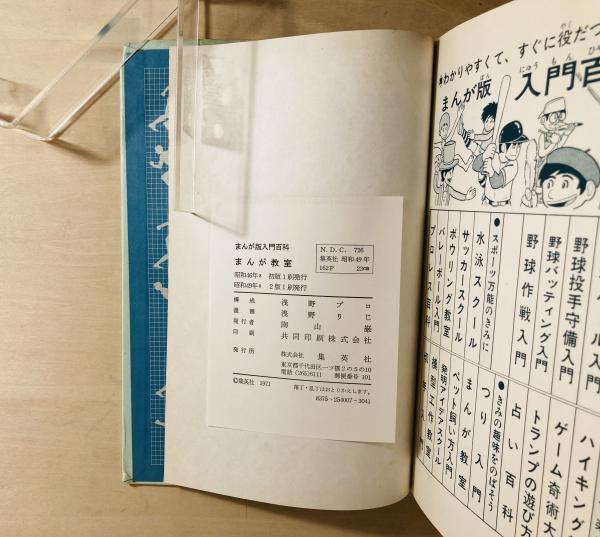 まんが版入門百科
まんが教室
昭和46年® 初版1刷発行
昭和49年® 2版1刷発行
構成 浅野プロ
漫画 浅野りじ
発行者 陶山巌
印刷 共同印刷株式会社
発行所 株式会社 集英社
東京都千代田区一ツ橋2の5の10
電話(265)6111 郵便番号101
©集英社 1971
落丁・乱丁はおとりかえします。
8375-254007-3041
N.D.C. 726
集英社 昭和49年
162P 23cm
わかりやすくて、すぐに役だつ
まんが版 入門百
野球投手守備入門
野球バッティング入門
野球作戦入門
●スポーツ万能のきみに
水泳スクール
サッカースクール
ボウリング教室
バレーボール入門
プロレス百科
ハイキング
ゲーム奇術大
トランプの遊び方
占い百科
●きみの趣味をのばそう
つり入門
まんが教室
ペット飼い方入門
発明アイデアスクール
模型工作教室